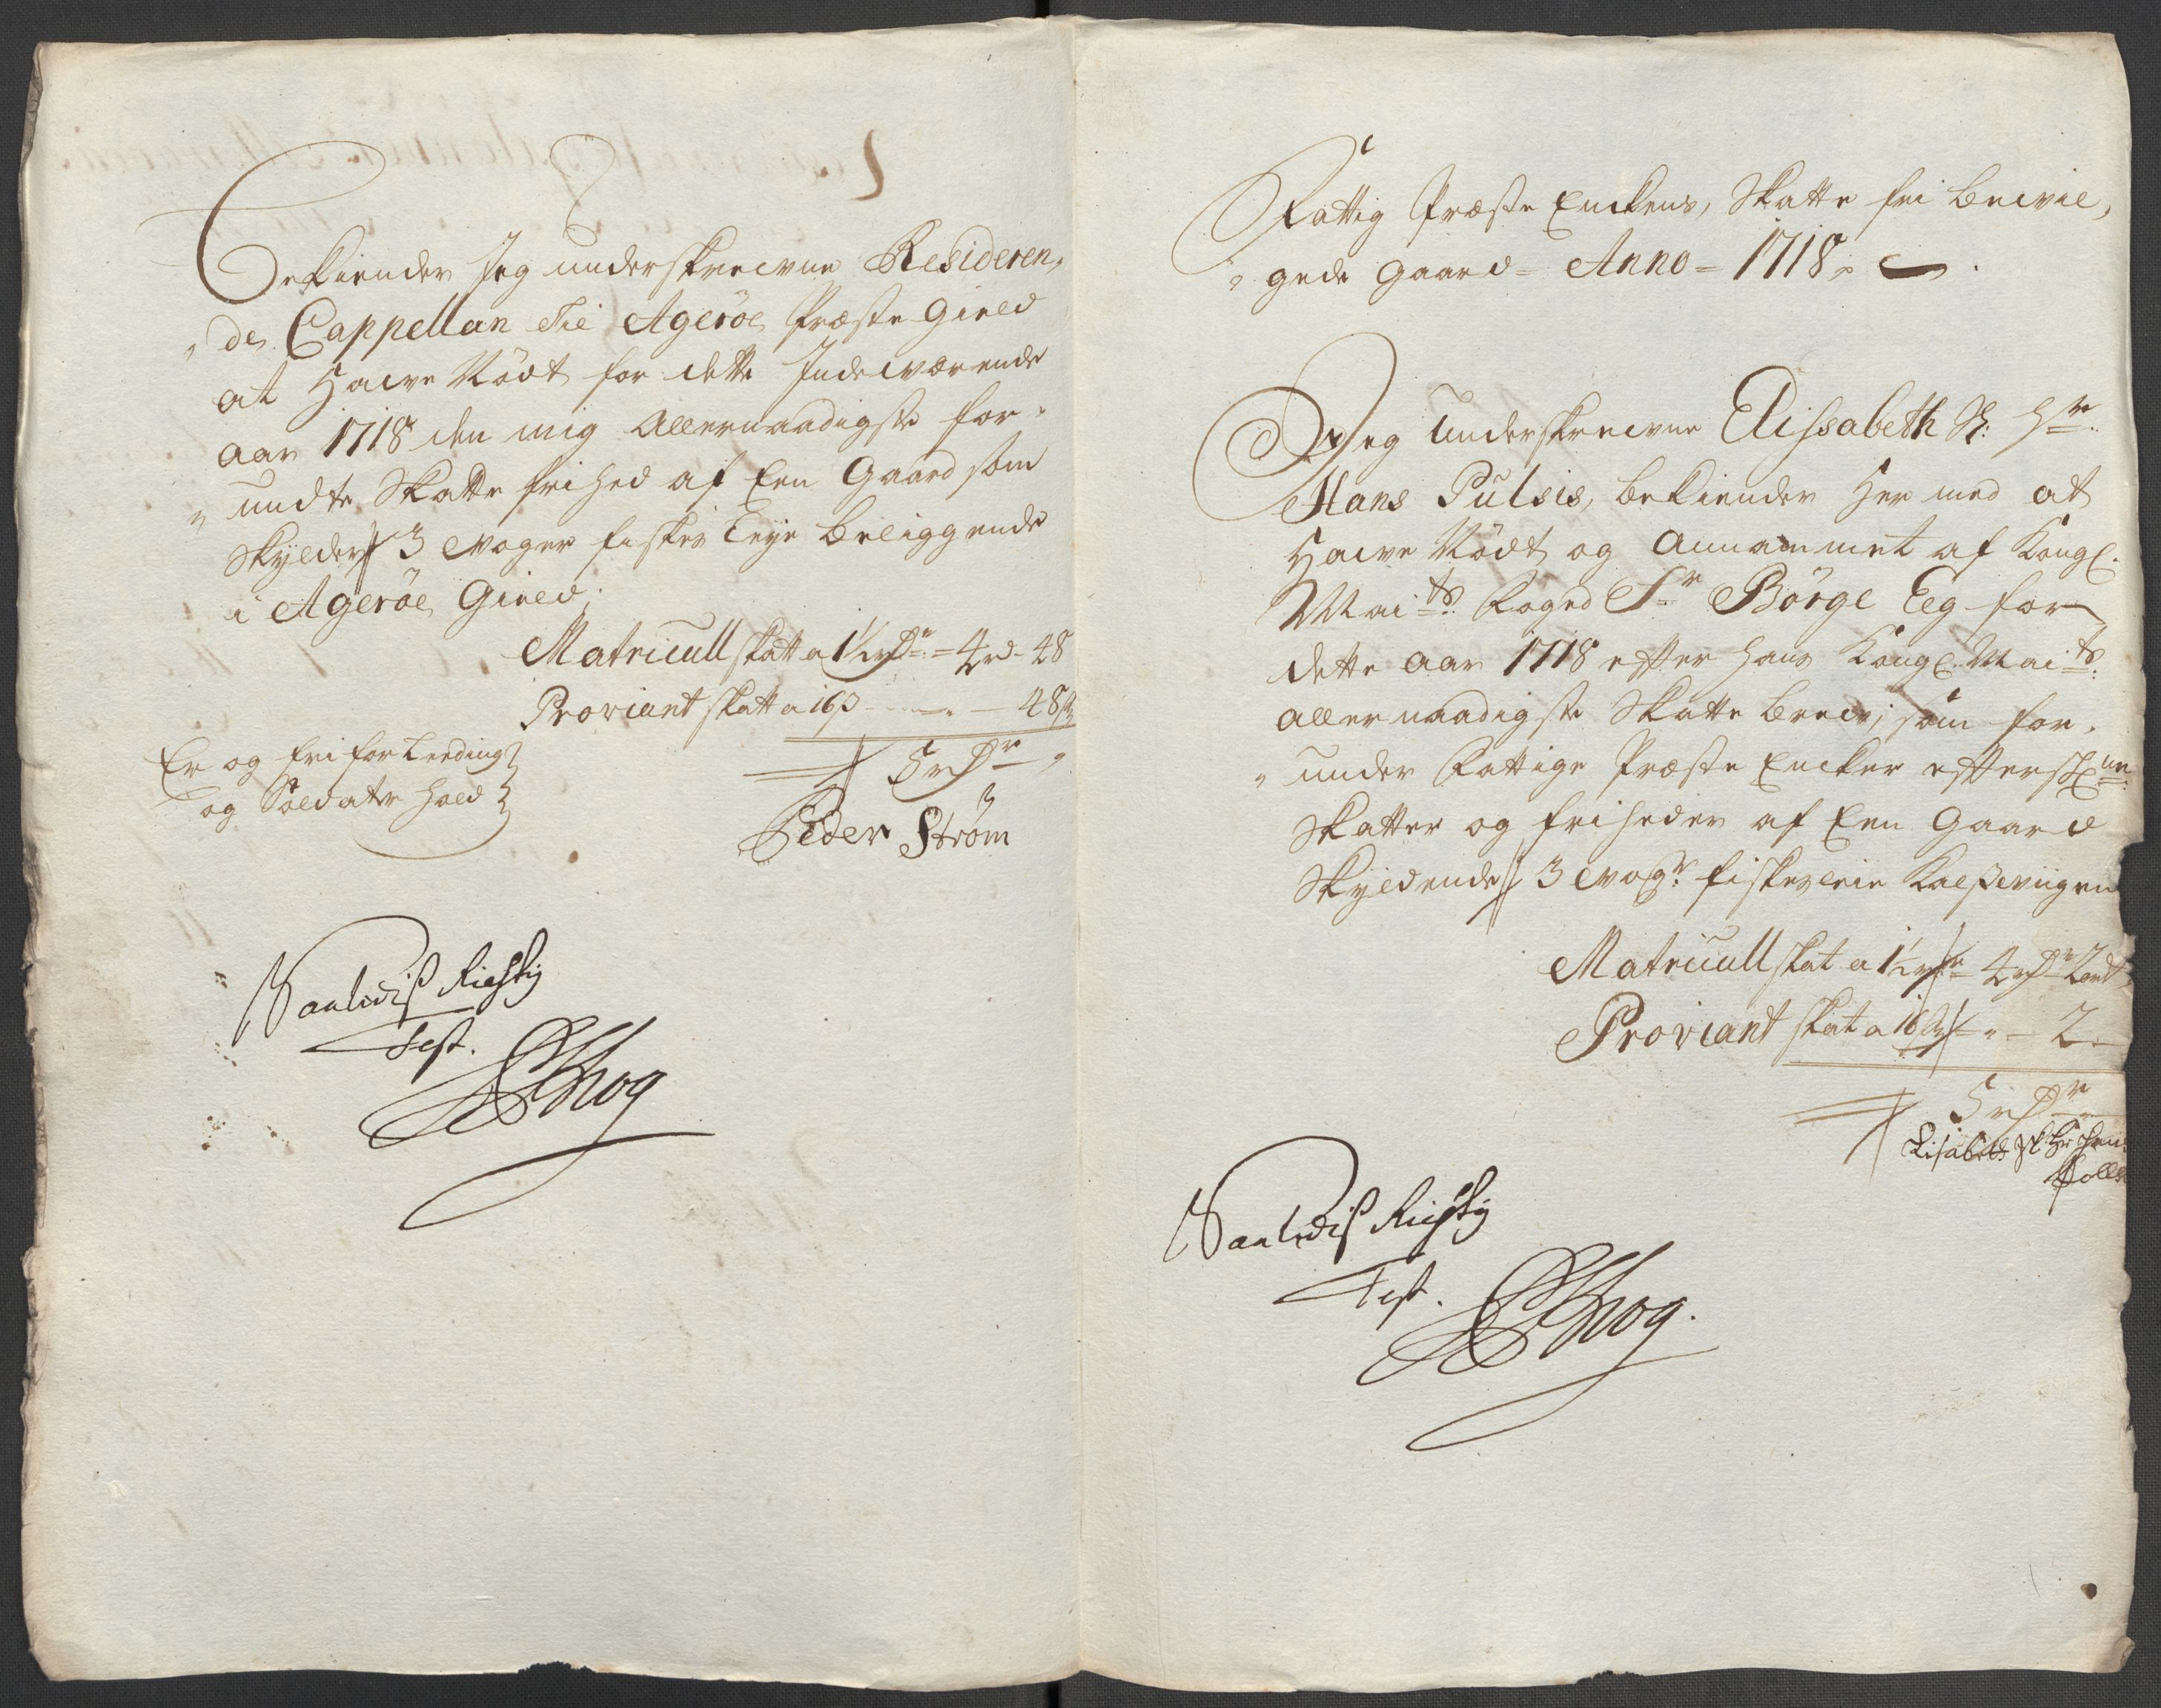 Bekiender Jeg underskrevne Resideren,
de, Cappellan til Agerøe, Præste Gield
at Hafve Nÿdt for dette Indeværende
aar 1718 den mig Allernaadigste for-
undte Skatte frihed af Een Gaard som
Skylder 3 woger fiskes Leye beliggende
i Agerøe Gield;
Matricull skatt a 1½ rdr = 4 rd - 48
Proviant skatt a 16 s - 48 s
5 rdr
Er og fri for Leeding
og Soldater hold
Peder Strøm
Saaledis Rigtig
Test.
Fattig Præste Enckens, Skatte fri bevil,
gede Gaard - Anno - 1718
Jeg Underskrevne Elissabeth Sl: Hr:
Hans Pulsis, bekiender Her med at
Hafve Nÿdt og annammet af Kongl.
Mai:ts Foged Sr Börge Eeg for
dette aar 1718 efter hans Kongl. Mai:ts
allernaadigste Skatte brev, som for-
under Fattige Præste Encker effterschne
Skatter og friheder af Een Gaard
Skyldende 3 wogr: fiskes leie
Matricull skat a 1½ - 4 rdr 2 ort
Proviant skat a 16 s - 2
5 rdr
Saaledis Rigtig
Test.